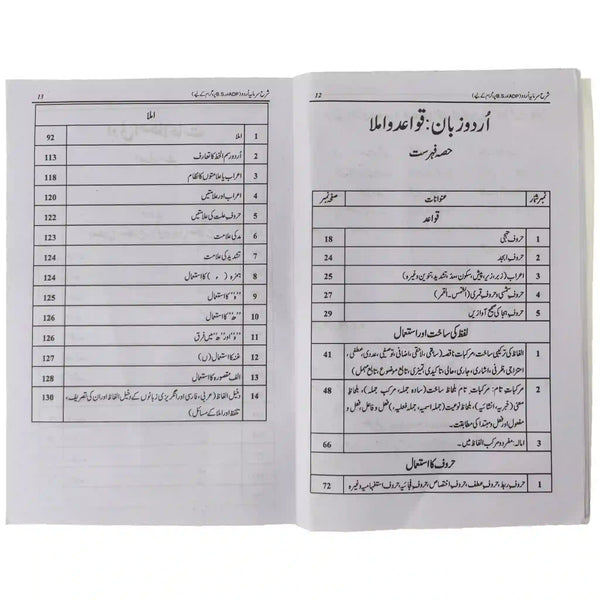 12 شرح سرمایۂ اردو (ADP اور B.S پروگرام کے لیے)
اُردو زبان: قواعد و املا
حصہ فہرست
نمبر شمار عنوانات صفحہ نمبر
قواعد
1 حروفِ تہجی 18
2 حروفِ ابجد 24
3 اعراب (زبر، زیر، پیش، سکون، مد، تشدید، تنوین وغیرہ) 25
4 حروفِ شمسی و حروفِ قمری (الشمس۔ القمر) 27
5 حروفِ ہجا کی صحیح آوازیں 29
لفظ کی ساخت اور استعمال
1 الفاظ کی ترکیبی ساخت، مرکبات: ناقصہ (سابقی، لاحقی، اضافی، توصیفی، عددی، عطفی، 41
امتزاجی، ظرفی، اشاری، جاری، حالی، تاکیدی، تمیزی، تابع موضوع، تابع مہمل)
2 مرکباتِ تام: مرکباتِ تام بلحاظ ساخت (سادہ جملہ، مرکب جملہ)، بلحاظ 48
معنی (خبریہ، انشائیہ)، بلحاظ نوعیت (جملہ اسمیہ، جملہ فعلیہ)، فعل و فاعل، فعل و
مفعول اور فعل و مبتدا کی مطابقت۔
3 امالہ: مفرد و مرکب الفاظ میں۔ 66
حروف کا استعمال
1 حروفِ ربط، حروفِ عطف، حروفِ اختصاص، حروفِ فجائیہ، حروفِ استفہامیہ وغیرہ 72
شرح سرمایۂ اردو (ADP اور B.S پروگرام کے لیے) 13
املا
1 املا 92
2 اُردو رسم الخط کا تعارف 113
3 اعراب یا علامتوں کا نظام 118
4 اعراب اور علامتیں 120
5 حروفِ علت کی علامتیں 122
6 مد کی علامت 123
7 تشدید کی علامت 124
8 ہمزہ ( ء ) کا استعمال 124
9 "ہ" کا استعمال 125
10 "ھ" کا استعمال 126
11 "ہ" اور "ھ" میں فرق 126
12 غنہ کا استعمال (ں) 127
13 الف مقصورہ کا استعمال 128
14 دخیل الفاظ (عربی، فارسی اور انگریزی زبانوں کے دخیل الفاظ اور ان کی تصریف، 130
تلفظ اور املا کے مسائل)